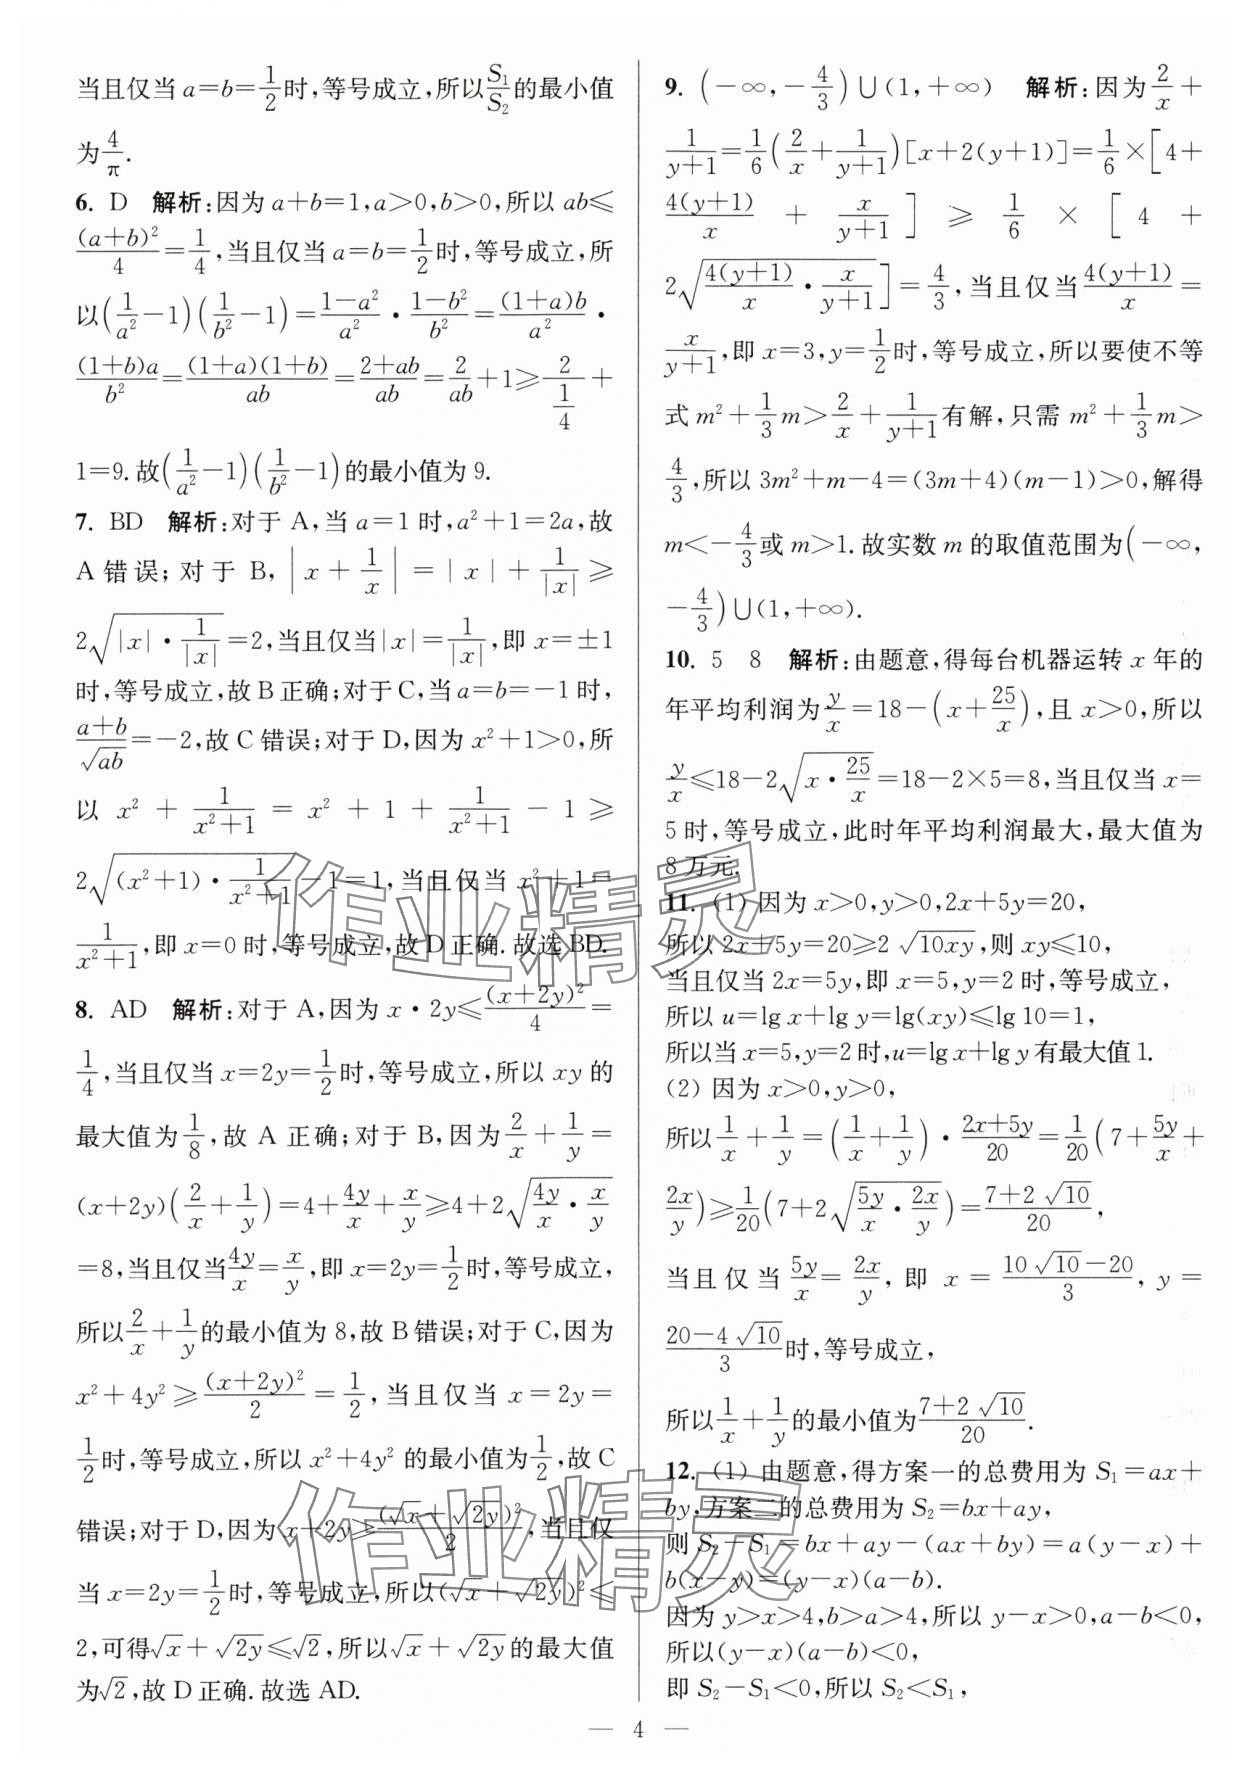 当且仅当 a=b=1/2时,等号成立,所以S₁/S₂的最小值
为4/π.
6. D 解析:因为 a+b=1,a>0,b>0,所以 ab≤
(a+b)²/4=1/4,当且仅当 a=b=1/2时,等号成立,所
以(1/a²-1)(1/b²-1)=(1-a²)/a²·(1-b²)/b²=(1+a)b/a²·
(1+b)a/b²=(1+a)(1+b)/ab=(2+ab)/ab=2/ab+1≥2/(1/4)+
1=9.故(1/a²-1)(1/b²-1)的最小值为 9.
7. BD 解析:对于 A,当 a=1 时,a²+1=2a,故
A 错误;对于 B,|x+1/x|=|x|+1/|x|≥
2√(|x|·1/|x|)=2,当且仅当|x|=1/|x|,即 x=±1
时,等号成立,故 B 正确;对于 C,当 a=b=-1 时,
(a+b)/√ab=-2,故 C 错误;对于 D,因为 x²+1>0,所
以 x²+1/(x²+1)=x²+1+1/(x²+1)-1≥
2√((x²+1)·1/(x²+1))-1=1,当且仅当 x²+1=
1/(x²+1),即 x=0 时,等号成立,故 D 正确.故选 BD.
8. AD 解析:对于 A,因为 x·2y≤(x+2y)²/4=
1/4,当且仅当 x=2y=1/2时,等号成立,所以 xy 的
最大值为1/8,故 A 正确;对于 B,因为2/x+1/y=
(x+2y)(2/x+1/y)=4+4y/x+x/y≥4+2√(4y/x·x/y)
=8,当且仅当4y/x=x/y,即 x=2y=1/2时,等号成立,
所以2/x+1/y的最小值为 8,故 B 错误;对于 C,因为
x²+4y²≥(x+2y)²/2=1/2,当且仅当 x=2y=
1/2时,等号成立,所以 x²+4y² 的最小值为1/2,故 C
错误;对于 D,因为 x+2y≥(√x+√2y)²/2,当且仅
当 x=2y=1/2时,等号成立,所以(√x+√2y)²≤
2,可得√x+√2y≤√2,所以√x+√2y的最大值
为√2,故 D 正确.故选 AD.
9. (-∞,-4/3)∪(1,+∞) 解析:因为2/x+
1/(y+1)=1/6(2/x+1/(y+1))[x+2(y+1)]=1/6×[4+
4(y+1)/x+x/(y+1)]≥1/6×[4+
2√(4(y+1)/x·x/(y+1))]=4/3,当且仅当4(y+1)/x=
x/(y+1),即 x=3,y=1/2时,等号成立,所以要使不等
式 m²+1/3m>2/x+1/(y+1)有解,只需 m²+1/3m>
4/3,所以 3m²+m-4=(3m+4)(m-1)>0,解得
m<-4/3或 m>1.故实数 m 的取值范围为(-∞,
-4/3)∪(1,+∞).
10. 5 8 解析:由题意,得每台机器运转 x 年的
年平均利润为y/x=18-(x+25/x),且 x>0,所以
y/x≤18-2√(x·25/x)=18-2×5=8,当且仅当 x=
5 时,等号成立,此时年平均利润最大,最大值为
8 万元.
11. (1) 因为 x>0,y>0,2x+5y=20,
所以 2x+5y=20≥2√10xy,则 xy≤10,
当且仅当 2x=5y,即 x=5,y=2 时,等号成立,
所以 u=lg x+lg y=lg(xy)≤lg 10=1,
所以当 x=5,y=2 时,u=lg x+lg y 有最大值 1.
(2) 因为 x>0,y>0,
所以1/x+1/y=(1/x+1/y)·(2x+5y)/20=1/20(7+5y/x+
2x/y)≥1/20(7+2√(5y/x·2x/y))=(7+2√10)/20,
当且仅当5y/x=2x/y,即 x=(10√10-20)/3,y=
(20-4√10)/3时,等号成立,
所以1/x+1/y的最小值为(7+2√10)/20.
12. (1) 由题意,得方案一的总费用为 S₁=ax+
by,方案二的总费用为 S₂=bx+ay,
则 S₂-S₁=bx+ay-(ax+by)=a(y-x)+
b(x-y)=(y-x)(a-b).
因为 y>x>4,b>a>4,所以 y-x>0,a-b<0,
所以(y-x)(a-b)<0,
即 S₂-S₁<0,所以 S₂<S₁,
— 4 —
作业精灵
作业精灵